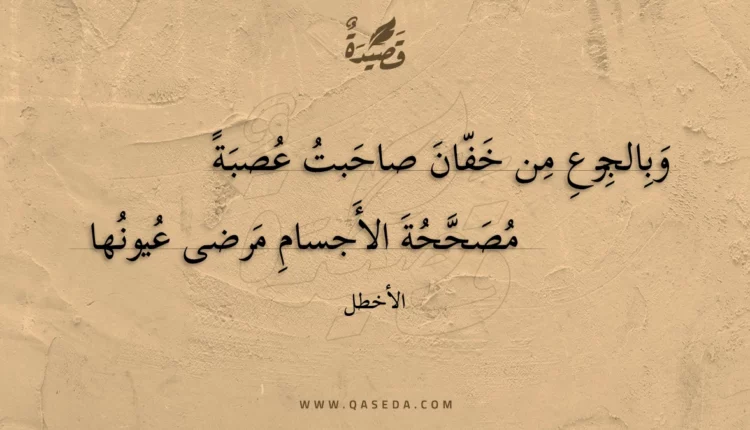 قَصِيدَةٌ
وَبِالجِزعِ مِن خَفّانَ صاحَبتُ عُصبَةً
مُصَحَّحُةَ الأَجسامِ مَرضى عُيونُها
الأخطل
WWW.QASEDA.COM